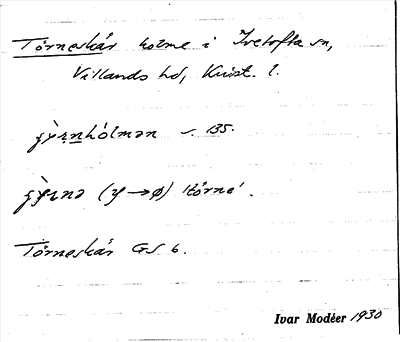 Törneskär holme i Ivetofta sn,
Villands hd, Krist. l.
s. 135.
'törne'.
Törneskär GS 6.
Ivar Modéer 1930